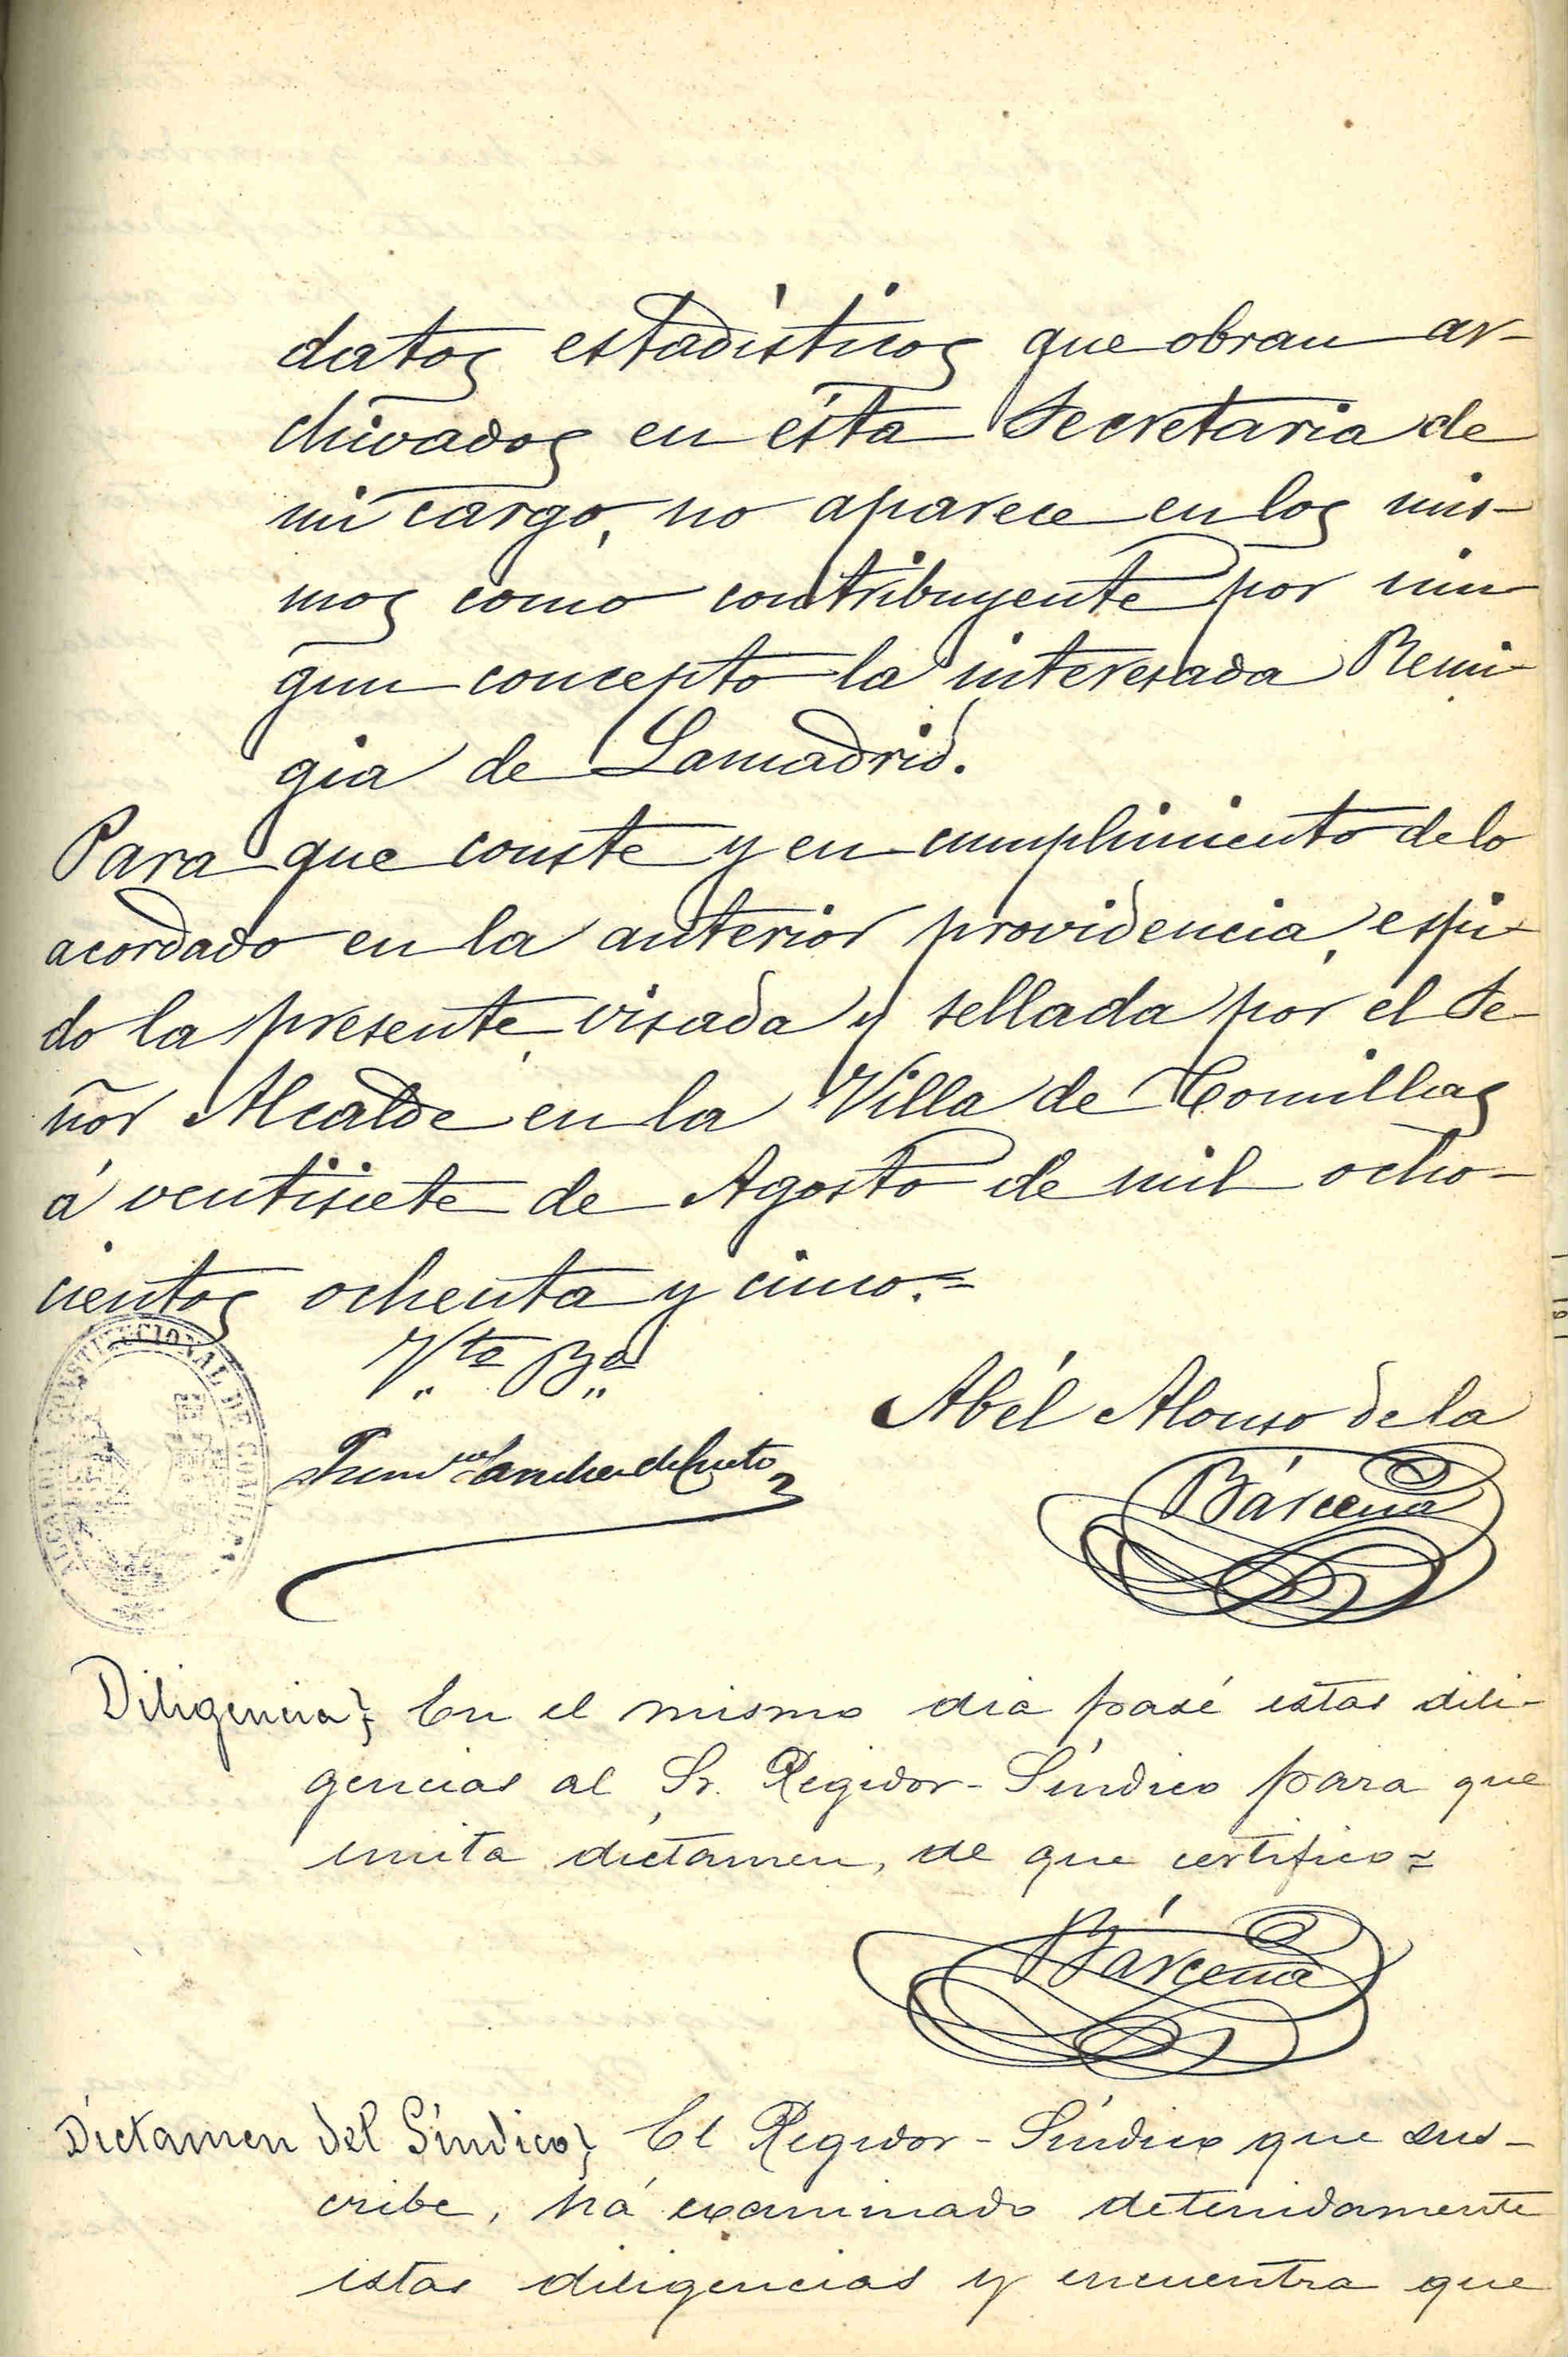 datos estadísticos que obran ar-
chivados en ésta Secretaria de
mi cargo, no aparece en los mis-
mos como contribuyente por nin
gun concepto la interesada Remi-
gia de Lamadrid.
Para que conste y en cumplimiento de lo
acordado en la anterior providencia, espi-
do la presente visada y sellada por el Se-
ñor Alcalde en la Villa de Comillas
á ventisiete de Agosto de mil ocho-
cientos ochenta y cinco.=
Vto Bo
Abél Alonso de la
Sanchez de Cueto
Bárcena
ALCALDIA CONSTITUCIONAL DE COMILLAS
Diligencia} En el mismo dia pasé estas dili-
gencias al Sr. Regidor-Síndico para que
emita dictamen, de que certifico=
Bárcena
Dictamen del Síndico} El Regidor-Síndico que sus-
cribe, há examinado detenidamente
estas diligencias y encuentra que